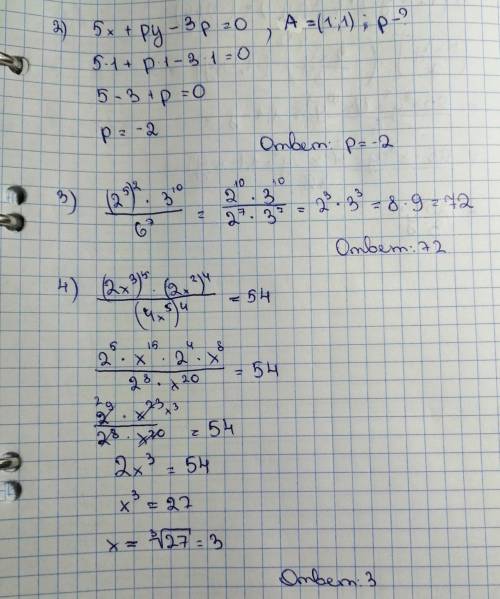 2) 5x + py - 3p = 0 , A = (1,1) ; p - ?
5·1 + p·1 - 3·1 = 0
5 - 3 + p = 0
p = -2
Ответ: p = -2
3) (2⁵)² · 3¹⁰ / 6⁷ = 2¹⁰ · 3¹⁰ / 2⁷ · 3⁷ = 2³ · 3³ = 8 · 9 = 72
Ответ: 72
4) (2x³)⁵ · (2x²)⁴ / (4x⁵)⁴ = 54
2⁵ · x¹⁵ · 2⁴ · x⁸ / 2⁸ · x²⁰ = 54
2 2⁹ · x²³ x³ / 2⁸ · x²⁰ = 54
2x³ = 54
x³ = 27
x = ∛27 = 3
Ответ: 3